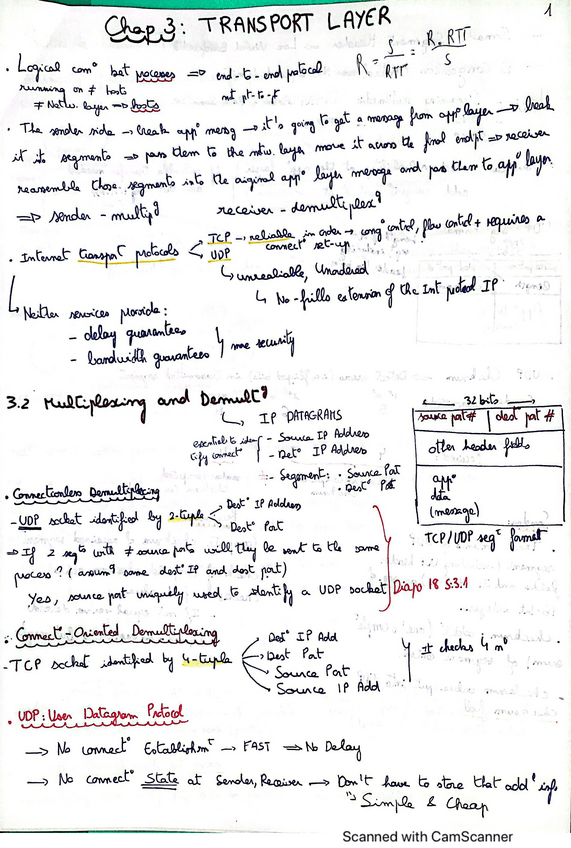 1
Chap 3: TRANSPORT LAYER
R = S / RTT = R. RTT / S
. Logical com° bet processes => end-to-end potocal
running on ≠ hosts not pt-to-pt
≠ Netw. layer => hosts
. The sender side → break app° messg → it's going to get a message from app° layer → break
it into segments => pass them to the ntw. layer move it across the final endpt => receiver
reassemble those segments into the original app° layer message and pass them to app° layer.
=> sender - multip^g receiver - demultiplex^g
. Internet transport protocols < TCP → reliable in order → cong° control, flow control + requires a
connect° set-up
UDP
↳ unreliable, Unordered
↳ No-frills extension of the Int protocol IP
↳ Neither services provide:
- delay guarantees
- bandwidth guarantees
me security
3.2 Multiplexing and Demult^g
↳ IP DATAGRAMS
essential to iden
tify connect°
- Source IP Address
- Det° IP Address
- Segment: . Source Port
. Dest° Port
← 32 bits →
source port # | dest° port #
other header fields
app°
data
(message)
TCP/UDP seg^t format
. Connectionless Demultiplexing
- UDP socket identified by 2-tuple < Dest° IP Address
Dest° Port
=> If 2 seg^ts with ≠ source ports will they be sent to the same
process? (assum^g same dest° IP and dest port)
Yes, source port uniquely used to identify a UDP socket
Diapo 18 S:3.1
. Connect°-Oriented Demultiplexing
- TCP socket identified by 4-tuple
Dest° IP Add
Dest° Port
Source Port
Source IP Add
It checks 4 n°
. UDP: User Datagram Protocol
→ No connect° Establishm^t → FAST => No Delay
→ No connect° State at Sender, Receiver → Don't have to store that add^l info
Simple & Cheap
Scanned with CamScanner